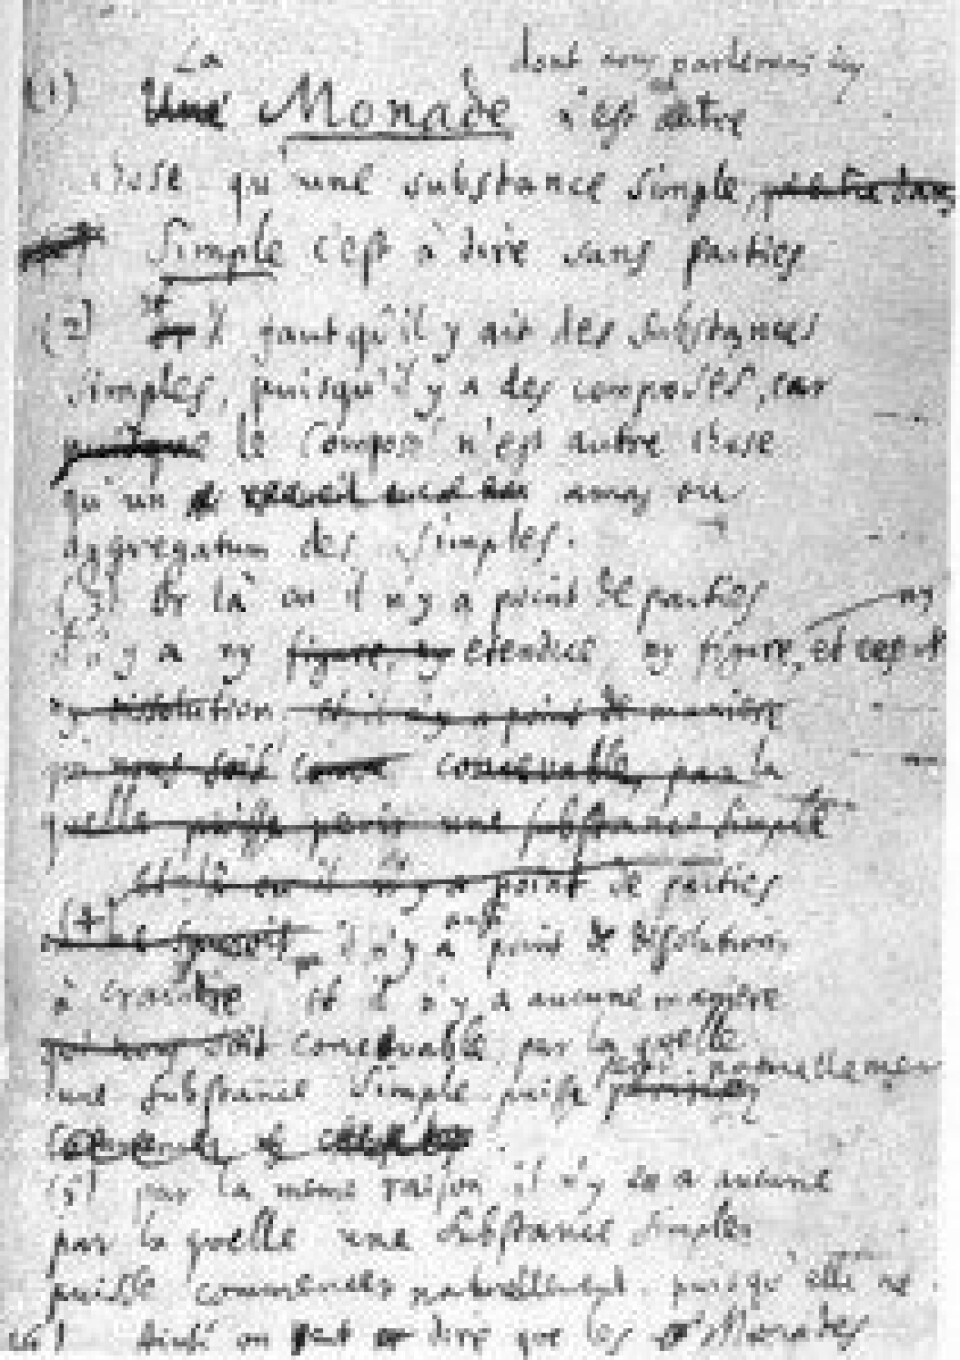 La dont nous parlerons icy
(1) Une Monade n'est autre
chose qu'une substance simple, qui entre dans
Simple c'est à dire sans parties
(2) Et Il faut qu'il y ait des substances
simples, puisqu'il y a des composés, car
puisque le Composé n'est autre chose
qu'un amas ou
aggregatum des simples.
(3) Or là ou il n'y a point de parties ny
il n'y a ny figure, ny etendue ny figure, et
ny dissolution, et il n'y a point de maniere
qui nous soit concevable, par la
quelle puisse perir une substance simple
Et là ou il n'y a point de parties
(4) il n'y a aussi point de dissolution
à craindre et il n'y a aucune maniere
qui nous soit concevable par la quelle
perir naturellement
une substance simple puisse
(5) par la même raison il n'y en a aucune
par la quelle une substance simple
puisse commencer naturellement, puisqu'elle ne
(6) Ainsi on peut dire que les Monades